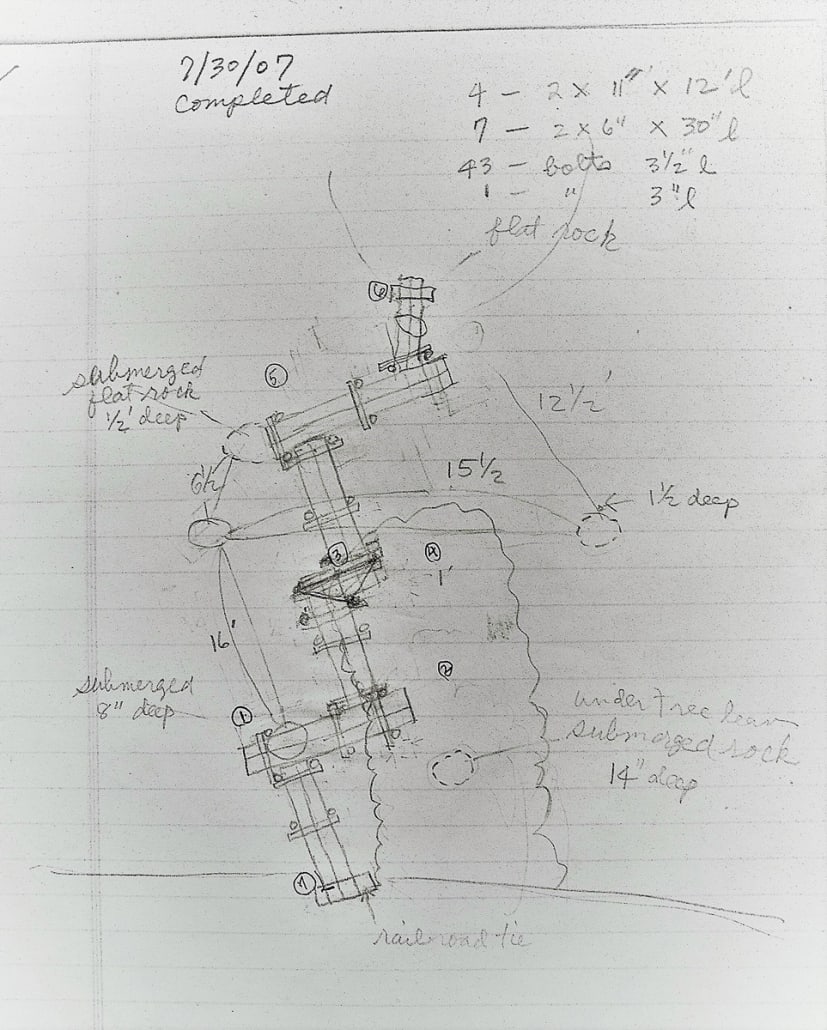 7/30/07
Completed
4 - 2 x 11" x 12' l
7 - 2 x 6" x 30" l
43 - bolts 3½" l
1 - " 3" l
flat rock
6
submerged
flat rock
½' deep
5
12½'
6½
15½
1½ deep
3
4
1'
16'
2
submerged
8" deep
1
under tree lean
submerged rock
14" deep
7
railroad tie